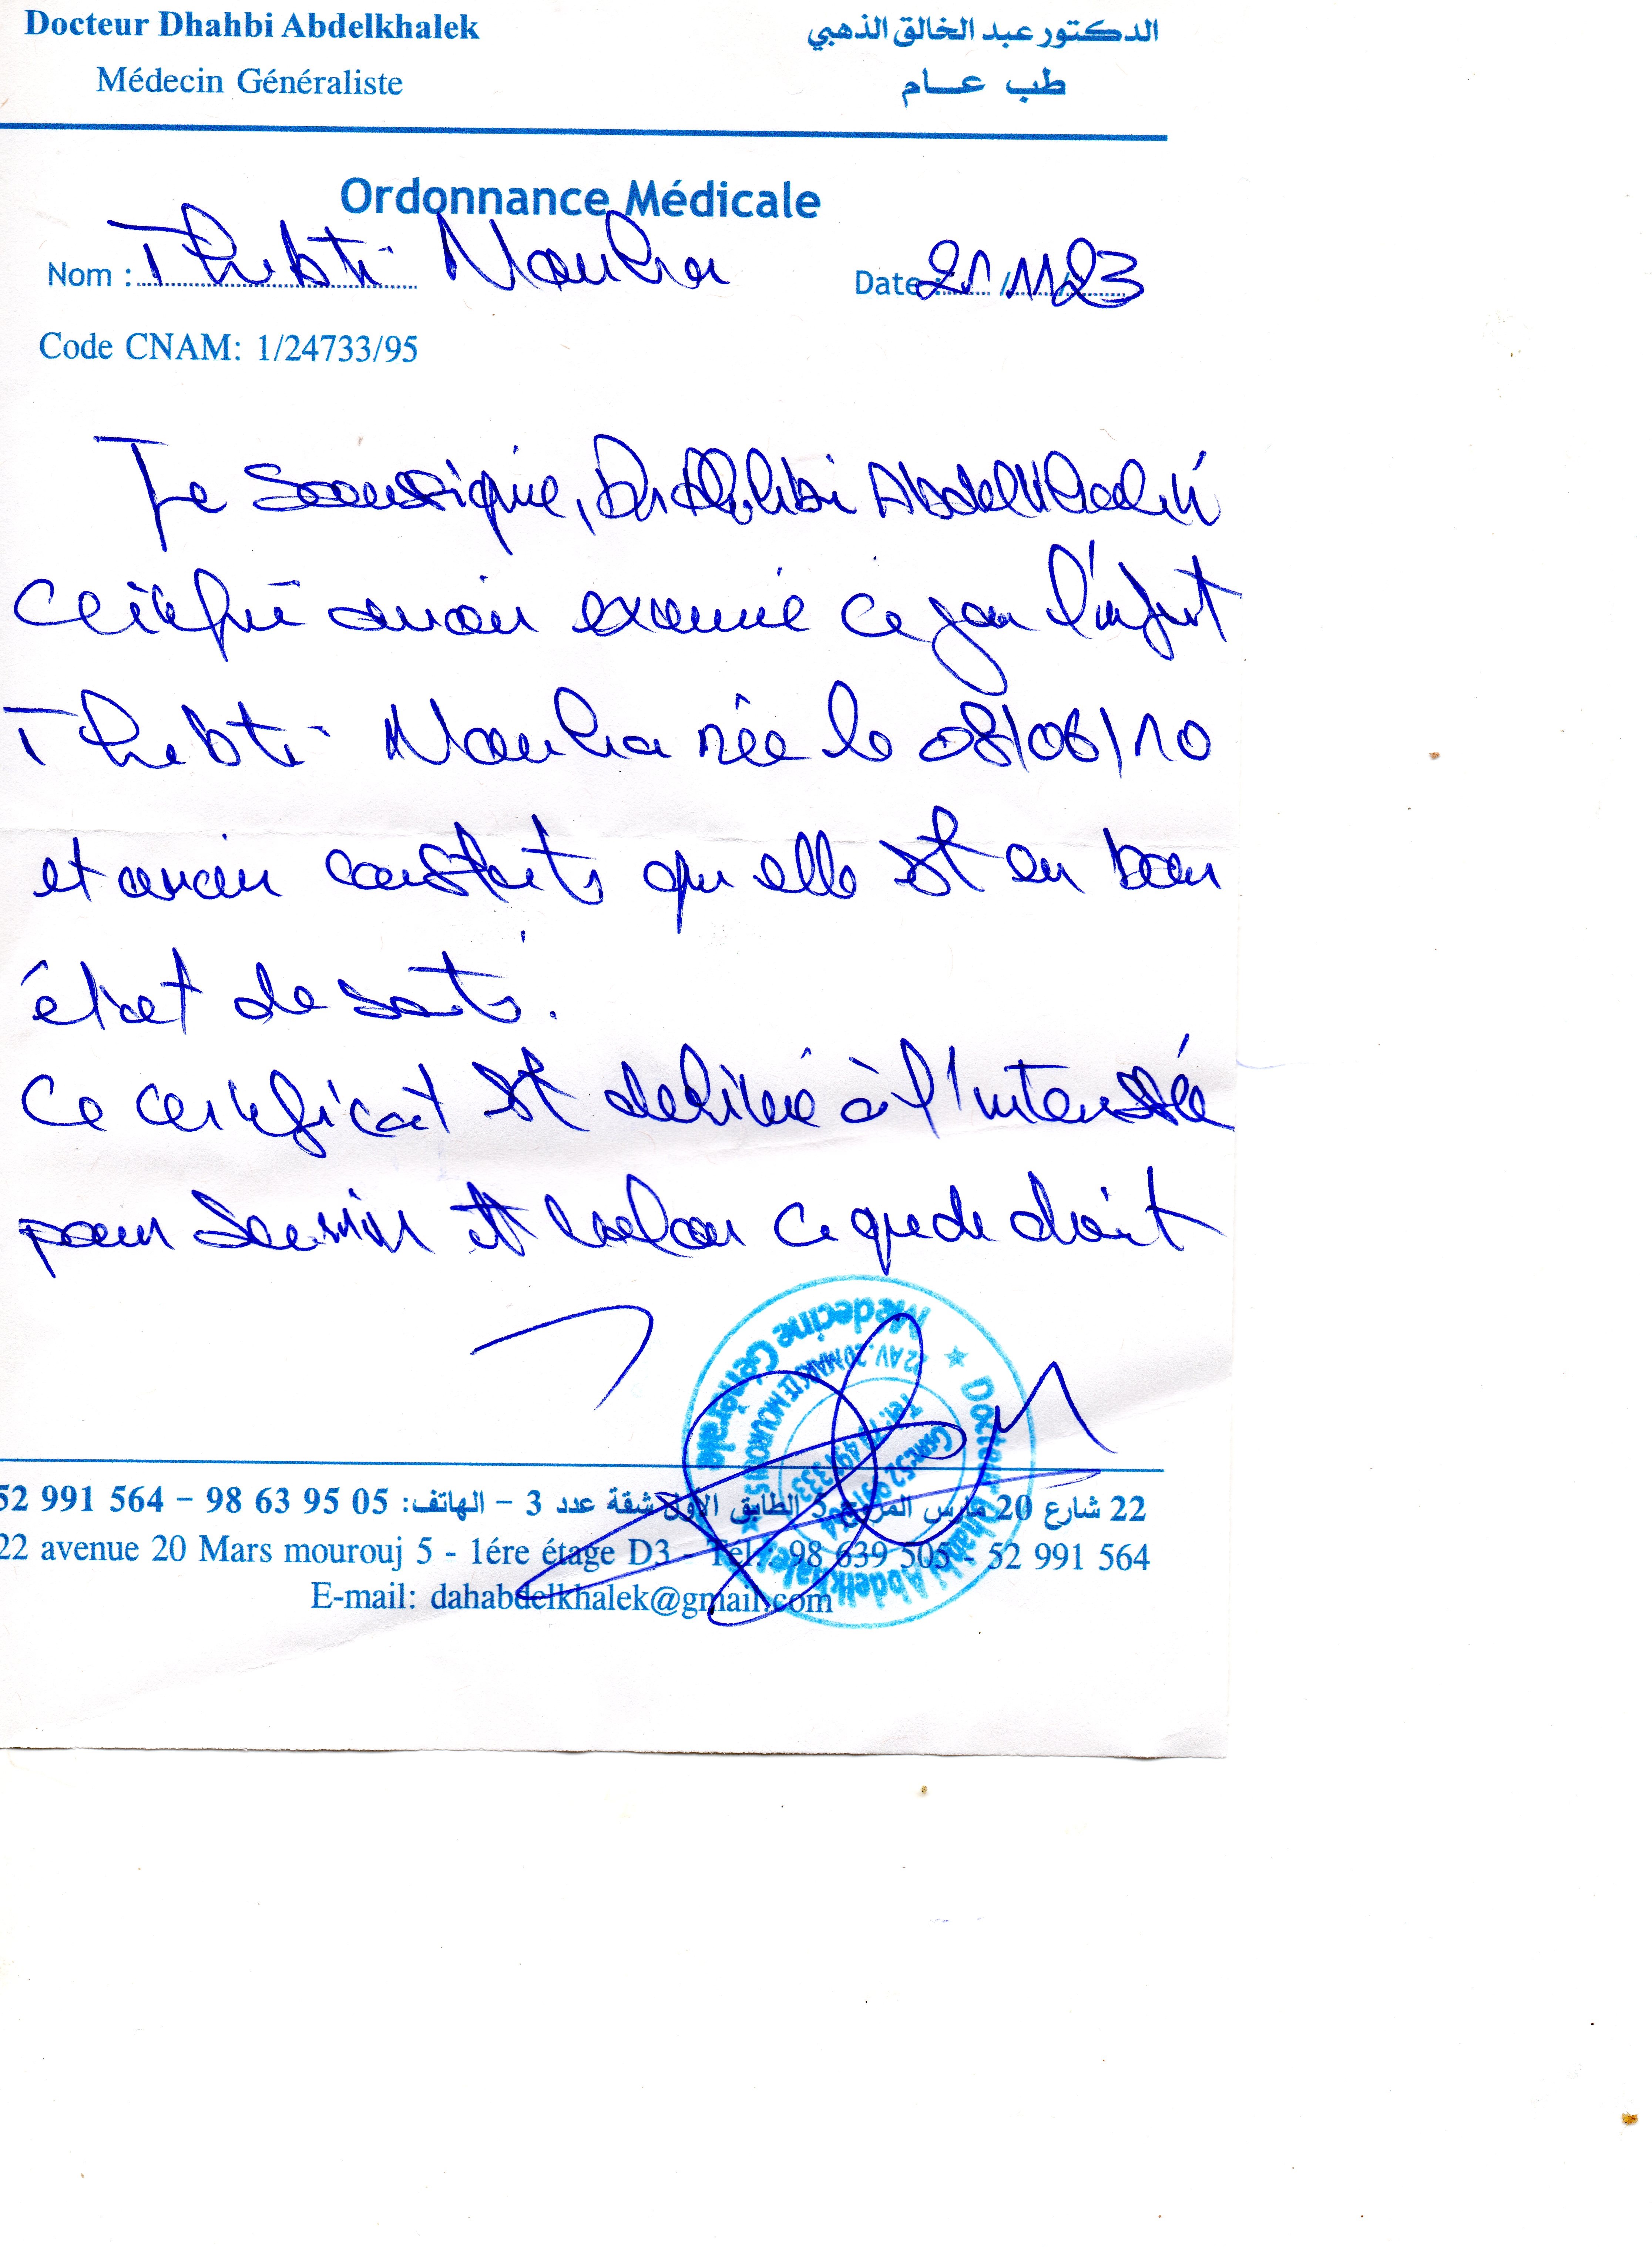 Docteur Dhahbi Abdelkhalek
الدكتور عبد الخالق الذهبي
Médecin Généraliste
طب عـــام
Ordonnance Médicale
Nom : Thebti Nouha
Date : 21/11/23
Code CNAM: 1/24733/95
Je soussigné, Dr Dhahbi Abdelkhalek
certifie avoir examiné ce jour l'enfant
Thebti Nouha née le 08/06/10
et avoir constaté qu'elle est en bon
état de santé.
Ce certificat est délivré à l'intéressée
pour servir et valoir ce que de droit
Médecine Générale
22 AV. 20 MARS LE MOUROUJ 5
Docteur Dhahbi Abdelkhalek
22 شارع 20 مارس المروج 5 الطابق الأول شقة عدد 3 – الهاتف: 05 95 63 98 – 564 991 52
22 avenue 20 Mars mourouj 5 - 1ére étage D3 - Tél.: 98 639 505 - 52 991 564
E-mail: dahabdelkhalek@gmail.com